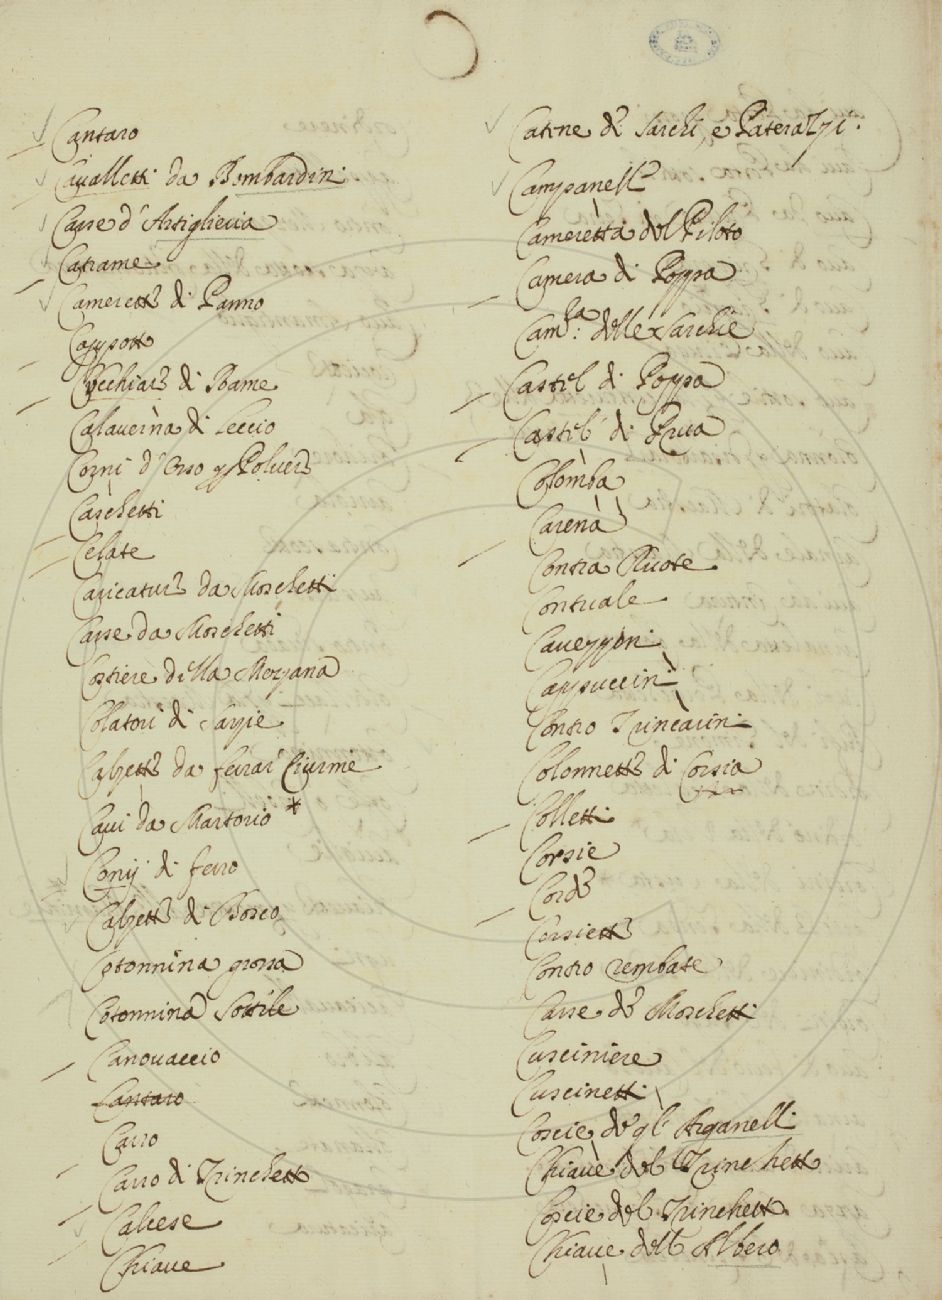 Cantaro
Cavalletti da Bombardini
Casse d'Artiglieria
Catrame
Camerette di Panno
Cappotto
Cucchiare di Rame
Calaverna di Leccio
Corni d'Osso p Polvere
Carchetti
Celate
Caricature da Moschetti
Casse da Moschetti
Costiere della Mezzana
Colatori di Sartie
Calzette da ferrar Ciurme
Cavi da Martorio *
Conij di ferro
Calzette di Bosco
Cotonnina grossa
Cotonnina Sottile
Canovaccio
Cantaro
Carro
Carro di Trinchetto
Calcese
Chiave
Catene di Sarchi, e Paterazzi.
Campanelle
Cameretta del Piloto
Camera di Poppa
Cam.ra delle Sarchie
Castel di Poppa
Castel di Prua
Colomba
Carena
Contra Ruote
Contuale
Cavezzoni
Cappuccini
Contro Trincarini
Colonnette di Corsia
Colletti
Corsie
Corde
Corsiette
Contro rembate
Casse de Moschetti
Cusciniere
Cuscinetti
Coscie degl' Arganelli
Chiave del Trinchetto
Coscie del Trinchetto
Chiave dell Albero